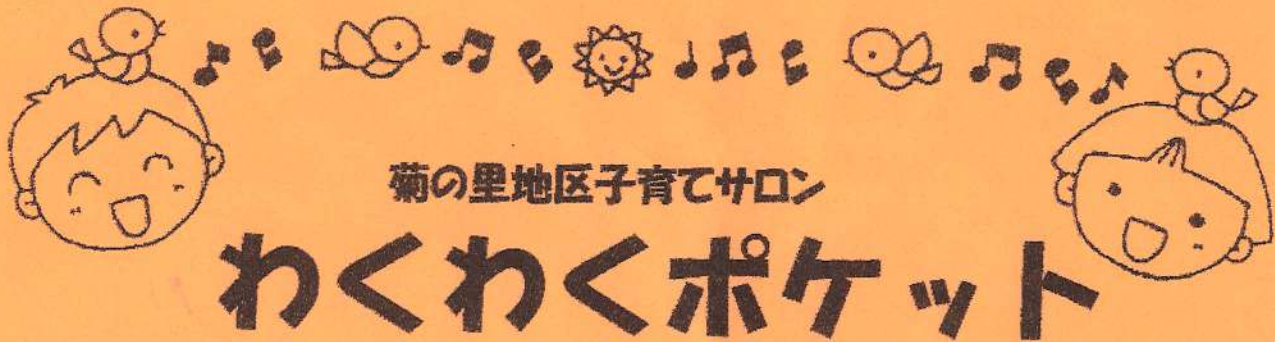 菊の里地区子育てサロン
わくわくポケット